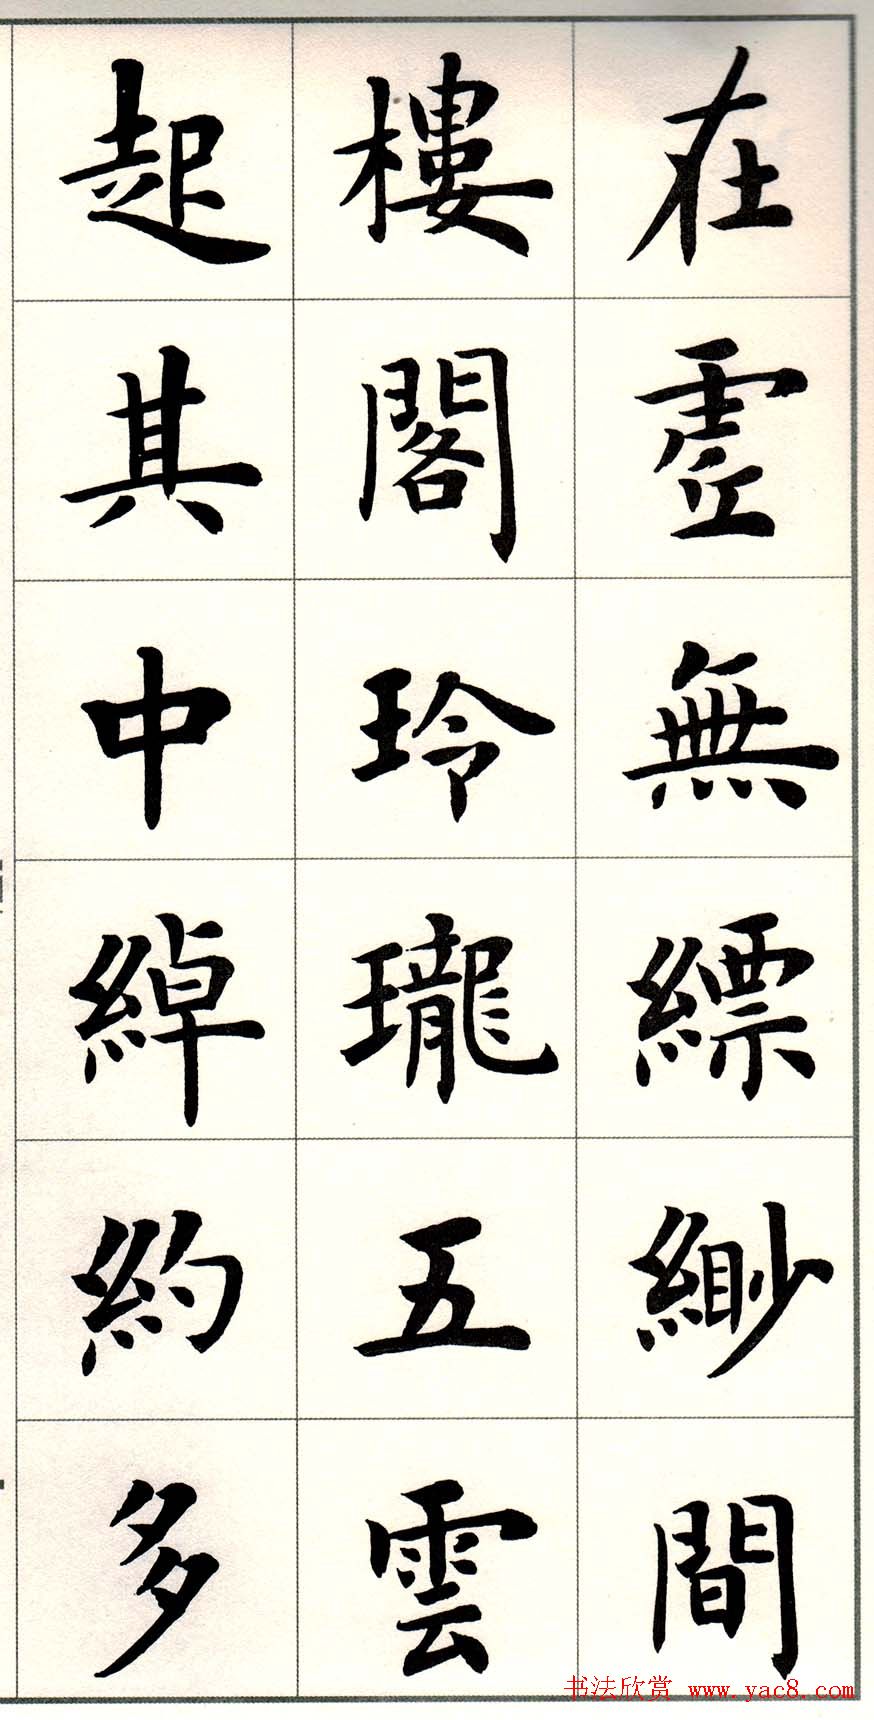 在虛無縹緲間
樓閣玲瓏五雲
起其中綽約多
书法欣赏 www.yac8.com